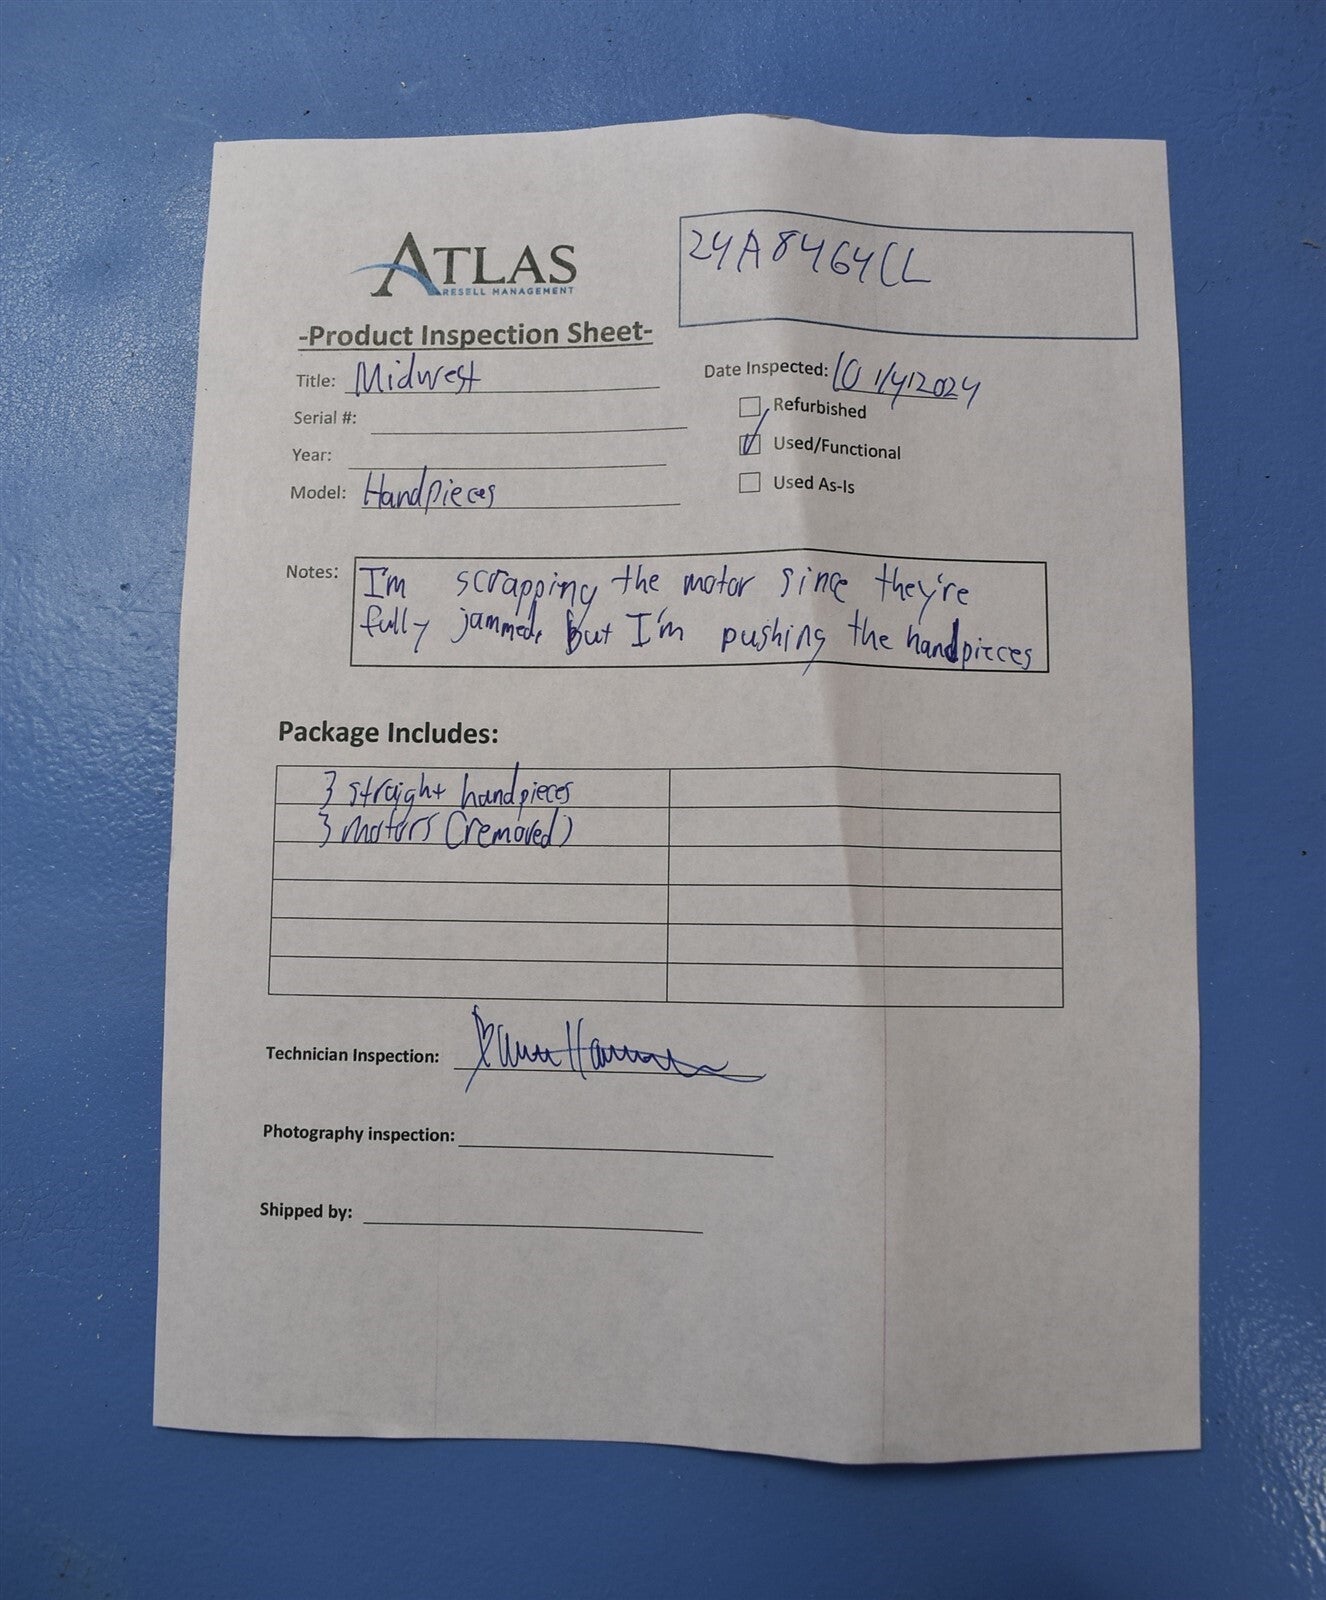 ATLAS
RESELL MANAGEMENT
24A8464CL
-Product Inspection Sheet-
Title: Midwest
Date Inspected: 10/14/2024
Serial #:
Refurbished
Year:
Used/Functional
Model: Handpieces
Used As-Is
Notes: I'm scrapping the motor since they're
fully jammed, but I'm pushing the handpieces
Package Includes:
3 straight handpieces
3 motors (removed)
Technician Inspection:
Photography inspection:
Shipped by: